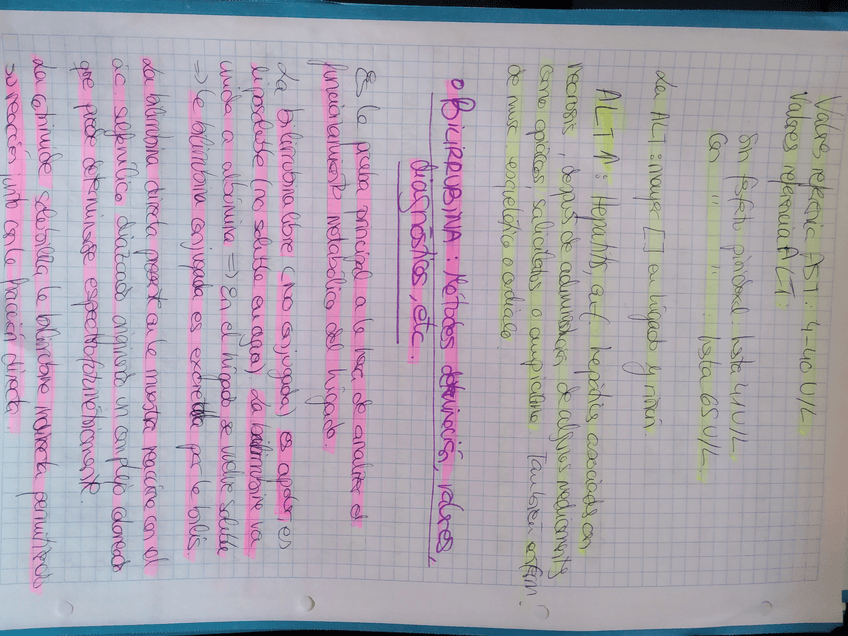 Valores referencia AST: 4-40 U/L.
Valores referencia ALT:
Sin fosfato piridoxal: hasta 41 U/L.
Con " " : hasta 65 U/L.
La ALT: mayor [] en hígado y riñón
ALT ↑: Hepatitis, enf hepática asociada con
necrosis, después de administración de algunos medicamentos
como opiáceos, salicilatos o ampicilina. También enferm.
de musc esquelético o cardiaco.
• BILIRRUBINA: Métodos determinación, valores,
diagnósticos, etc.
Es la prueba principal a la hora de analizar el
funcionamiento metabólico del hígado.
La bilirrubina libre (no conjugada) es apolar, es
liposoluble (no soluble en agua). La bilirrubina va
unida a albúmina => En el hígado se vuelve soluble
=> la bilirrubina conjugada es excretada por la bilis.
La bilirrubina directa presente en la muestra reacciona con el
ác. sulfanílico diazoado originando un complejo coloreado
que puede determinarse espectrofotométricamente.
La cetrimide solubiliza la bilirrubina indirecta permitiendo
su reacción junto con la fracción directa.